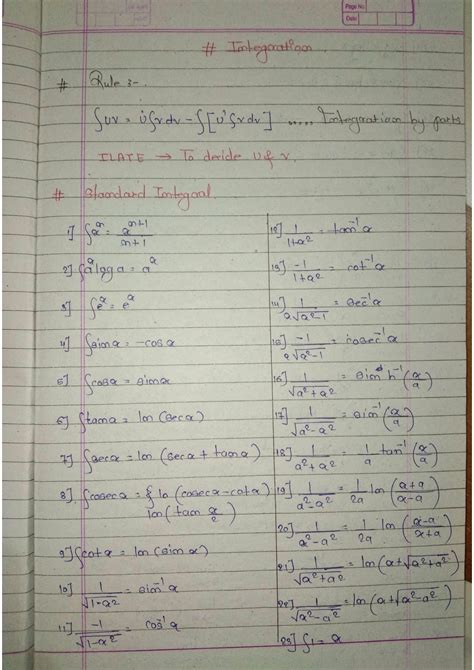 Page No.
Date
# Integration
# Rule :-
∫uv = u∫vdv - ∫[u'∫vdv] ..... Integration by parts
ILATE → To decide U & V.
# Standard Integral.
1] ∫x^n = x^(n+1)/(n+1)
2] ∫a^x log a = a^x
3] ∫e^x = e^x
4] ∫sinx = -cosx
5] ∫cosx = sinx
6] ∫tanx = ln(secx)
7] ∫secx = ln(secx + tanx)
8] ∫cosecx = { ln(cosecx-cotx)
ln(tan x/2)
9] ∫cotx = ln(sinx)
10] 1/√(1-x²) = sin⁻¹x
11] -1/√(1-x²) = cos⁻¹x
12] 1/(1+x²) = tan⁻¹x
13] -1/(1+x²) = cot⁻¹x
14] 1/(x√(x²-1)) = sec⁻¹x
15] -1/(x√(x²-1)) = cosec⁻¹x
16] 1/√(x²+a²) = sinh⁻¹(x/a)
17] 1/√(a²-x²) = sin⁻¹(x/a)
18] 1/(a²+x²) = 1/a tan⁻¹(x/a)
19] 1/(a²-x²) = 1/2a ln((a+x)/(a-x))
20] 1/(x²-a²) = 1/2a ln((x-a)/(x+a))
21] 1/√(x²+a²) = ln(x+√(x²+a²))
22] 1/√(x²-a²) = ln(x+√(x²-a²))
23] ∫1 = x